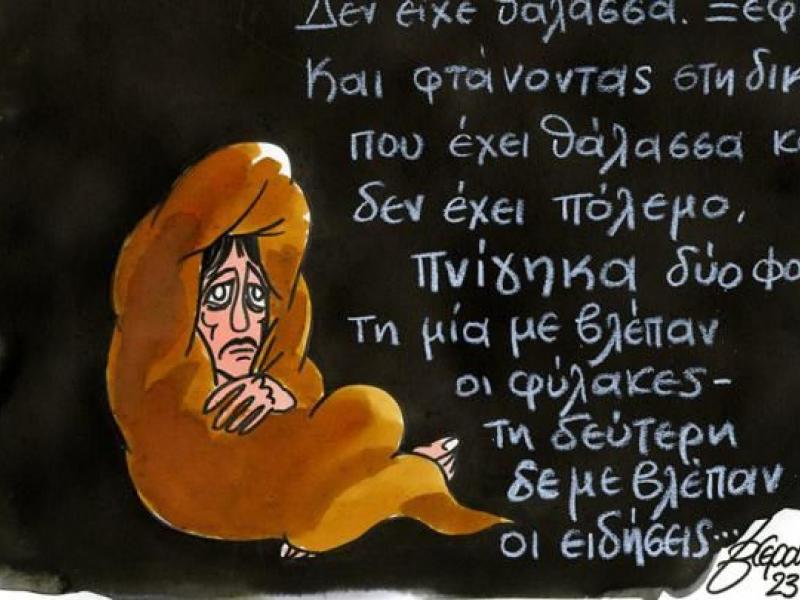 Δεν είχε θάλασσα. Ξεφ
Και φτάνοντας στη δικ
που έχει θάλασσα κ
δεν έχει πόλεμο,
πνίγηκα δύο φο
τη μία με βλέπαν
οι φύλακες-
τη δεύτερη
δε με βλέπαν
οι ειδήσεις...
23